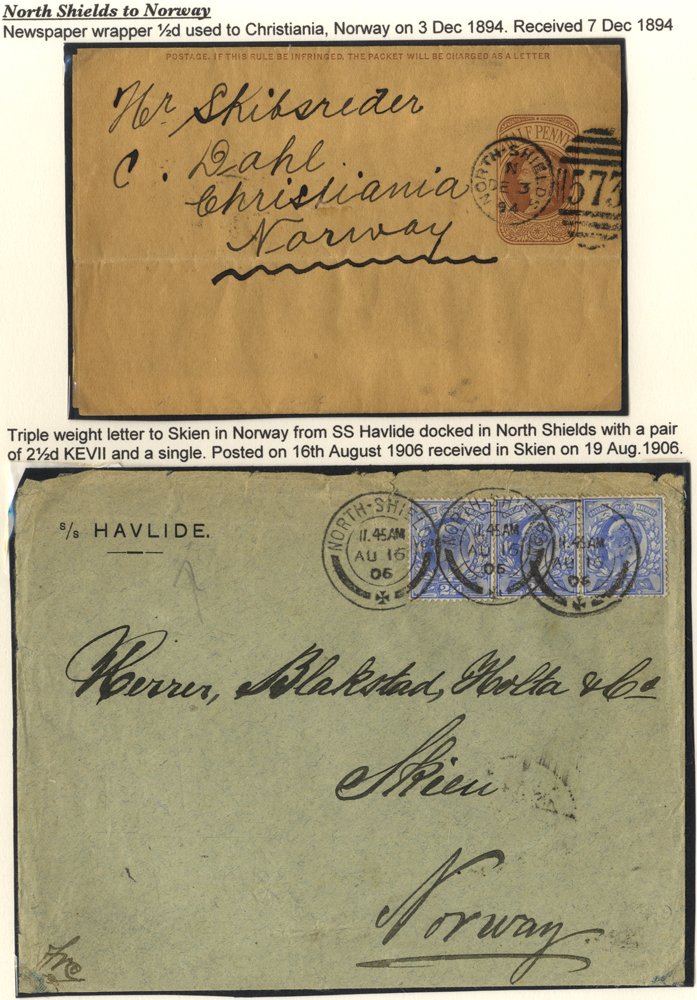 North Shields to Norway
Newspaper wrapper ½d used to Christiania, Norway on 3 Dec 1894. Received 7 Dec 1894
POSTAGE. IF THIS RULE BE INFRINGED, THE PACKET WILL BE CHARGED AS A LETTER
Hr Skibsreder
C. Dahl
Christiania
Norway
HALF PENNY
NORTH-SHIELDS
N
DE 3
94
573
Triple weight letter to Skien in Norway from SS Havlide docked in North Shields with a pair
of 2½d KEVII and a single. Posted on 16th August 1906 received in Skien on 19 Aug.1906.
s/s HAVLIDE.
NORTH-SHIELDS
11.45AM
AU 16
06
NORTH-SHIELDS
11.45AM
AU 16
06
11.45AM
AU 16
06
Herrer, Blakstad, Holta & Co
Skien
Norway